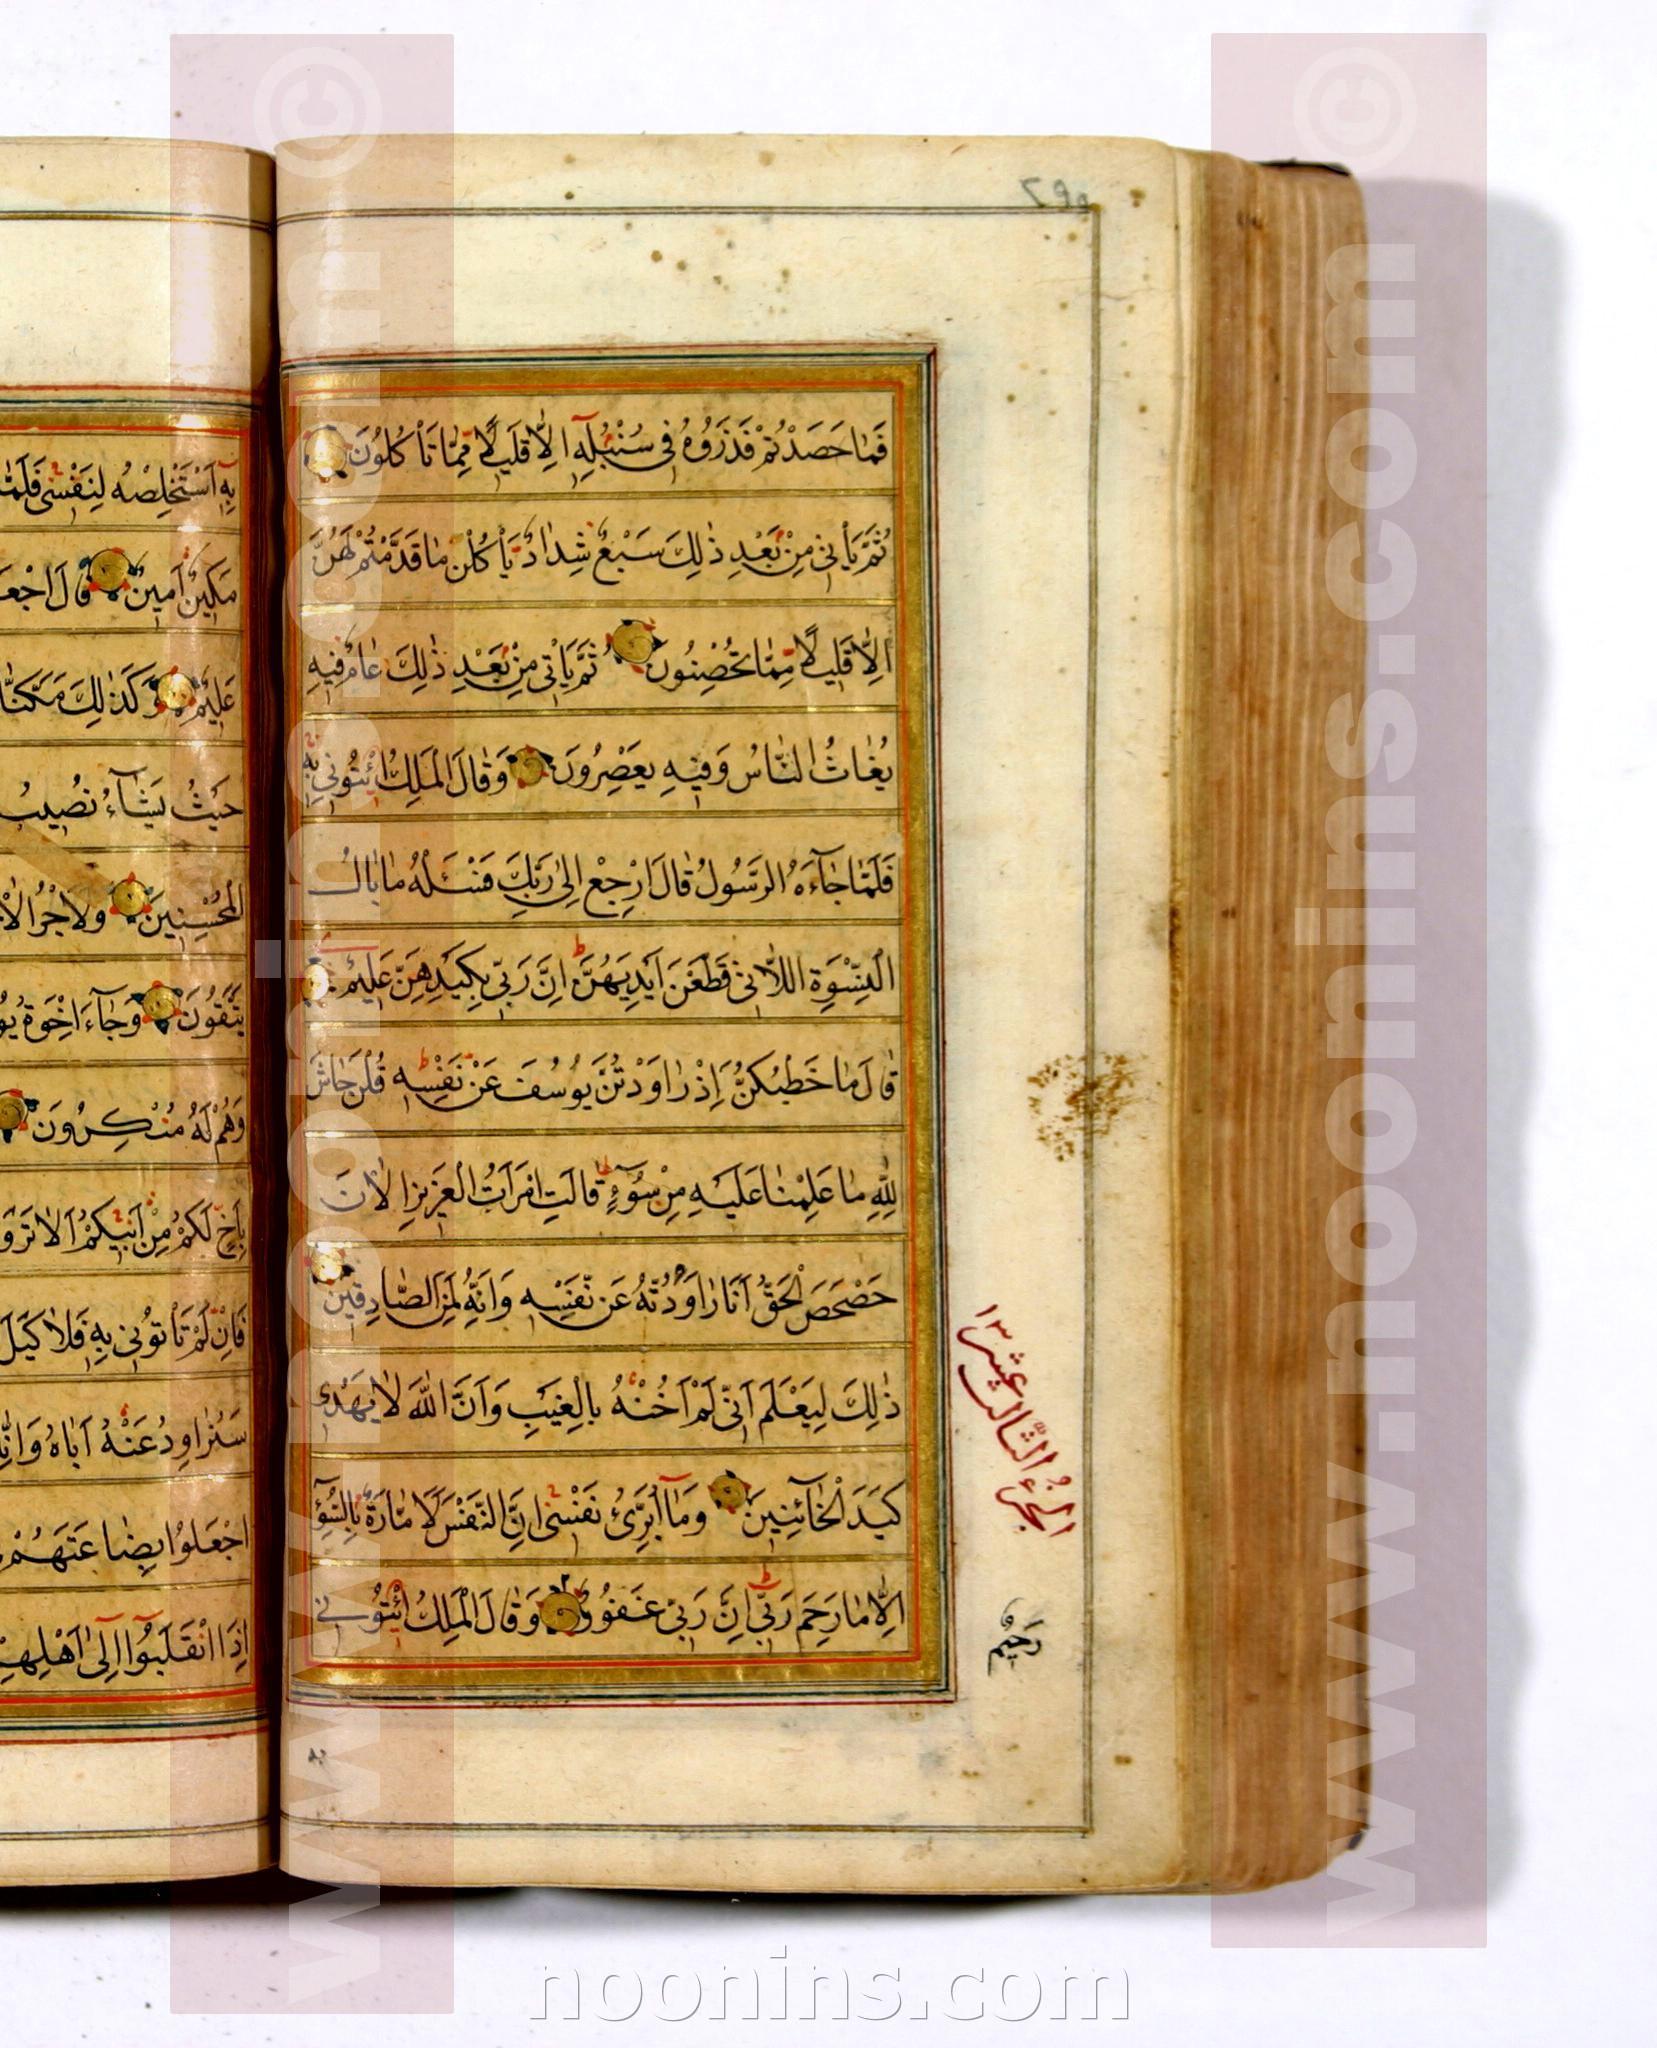 فَمَا حَصَدْتُمْ فَذَرُوهُ فِي سُنْبُلِهِ اِلَّا قَلِيلًا مِمَّا تَأْكُلُونَ
ثُمَّ يَأْتِي مِنْ بَعْدِ ذٰلِكَ سَبْعٌ شِدَادٌ يَأْكُلْنَ مَا قَدَّمْتُمْ لَهُنَّ
اِلَّا قَلِيلًا مِمَّا تُحْصِنُونَ ثُمَّ يَأْتِي مِنْ بَعْدِ ذٰلِكَ عَامٌ فِيهِ
يُغَاثُ النَّاسُ وَفِيهِ يَعْصِرُونَ وَقَالَ الْمَلِكُ ائْتُونِي بِهِ
فَلَمَّا جَآءَهُ الرَّسُولُ قَالَ ارْجِعْ اِلٰى رَبِّكَ فَسْئَلْهُ مَا بَالُ
النِّسْوَةِ اللَّاتِي قَطَّعْنَ اَيْدِيَهُنَّ اِنَّ رَبِّي بِكَيْدِهِنَّ عَلِيمٌ
قَالَ مَا خَطْبُكُنَّ اِذْ رَاوَدْتُنَّ يُوسُفَ عَنْ نَفْسِهِ قُلْنَ حَاشَ
لِلّٰهِ مَا عَلِمْنَا عَلَيْهِ مِنْ سُوٓءٍ قَالَتِ امْرَاَتُ الْعَزِيزِ الْاٰنَ
حَصْحَصَ الْحَقُّ اَنَا رَاوَدْتُهُ عَنْ نَفْسِهِ وَاِنَّهُ لَمِنَ الصَّادِقِينَ
ذٰلِكَ لِيَعْلَمَ اَنِّي لَمْ اَخُنْهُ بِالْغَيْبِ وَاَنَّ اللّٰهَ لَا يَهْدِي
كَيْدَ الْخَآئِنِينَ وَمَآ اُبَرِّئُ نَفْسِي اِنَّ النَّفْسَ لَاَمَّارَةٌ بِالسُّوٓءِ
اِلَّا مَا رَحِمَ رَبِّي اِنَّ رَبِّي غَفُورٌ وَقَالَ الْمَلِكُ ائْتُونِي
رَحِيمٌ
الجزء الثالث عشر ١٣
بِهِ اَسْتَخْلِصْهُ لِنَفْسِي فَلَمَّا
مَكِينٌ اَمِينٌ قَالَ
عَلِيمٌ وَكَذٰلِكَ مَكَّنَّا
حَيْثُ يَشَآءُ نُصِيبُ
الْمُحْسِنِينَ وَلَاَجْرُ
يَتَّقُونَ وَجَآءَ اِخْوَةُ
وَهُمْ لَهُ مُنْكِرُونَ
بِاَخٍ لَكُمْ مِنْ اَبِيكُمْ اَلَا
فَاِنْ لَمْ تَأْتُونِي بِهِ فَلَا كَيْلَ
سَنُرَاوِدُ عَنْهُ اَبَاهُ
اجْعَلُوا بِضَاعَتَهُمْ
اِذَا انْقَلَبُوٓا اِلٰٓى اَهْلِهِمْ
www.noonins.com ©
www.noonins.com ©
noonins.com